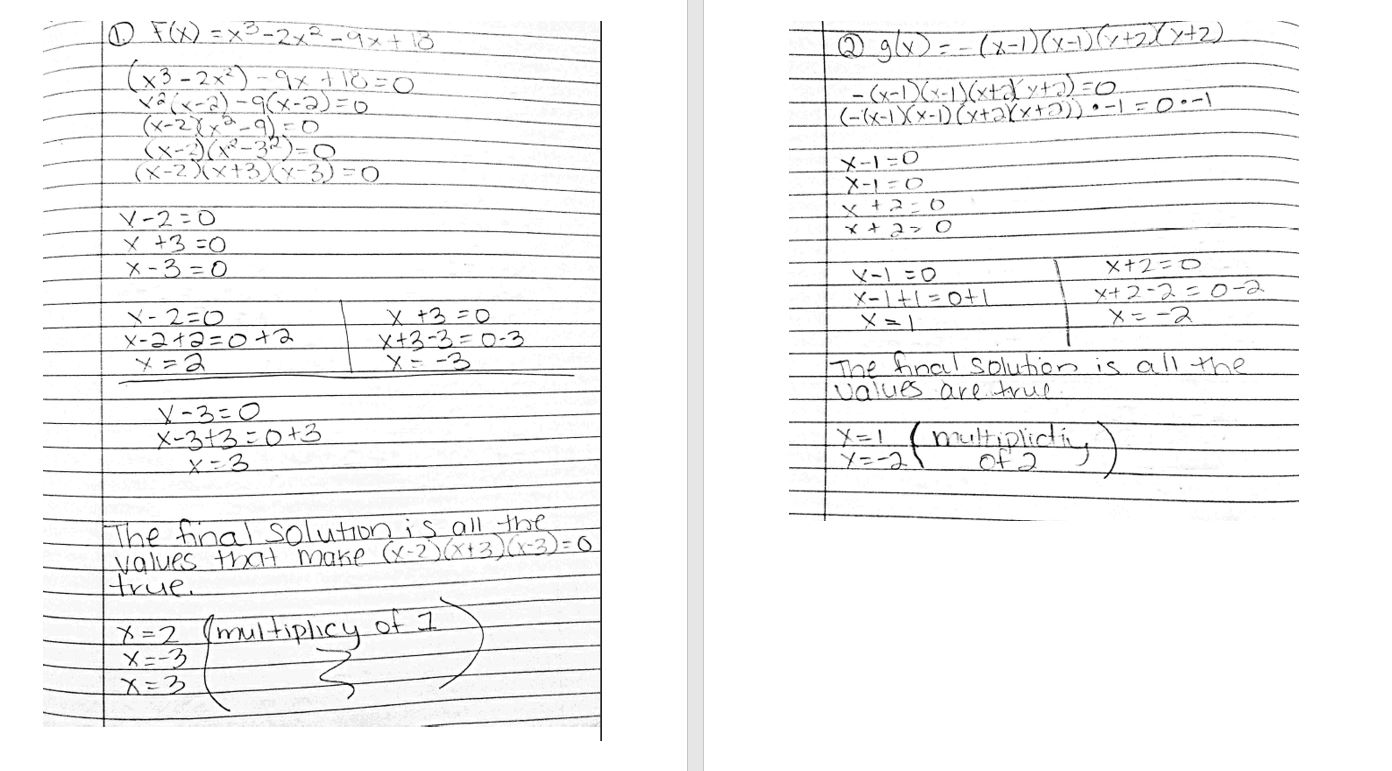 1. F(x) = x³-2x²-9x+18
(x³-2x²)-9x+18=0
x²(x-2)-9(x-2)=0
(x-2)(x²-9)=0
(x-2)(x²-3²)=0
(x-2)(x+3)(x-3)=0
x-2=0
x+3=0
x-3=0
x-2=0
x-2+2=0+2
x=2
x+3=0
x+3-3=0-3
x=-3
x-3=0
x-3+3=0+3
x=3
The final solution is all the
values that make (x-2)(x+3)(x-3)=0
true.
x=2 (multiplicy of 1)
x=-3
x=3
2 g(x)=-(x-1)(x-1)(x+2)(x+2)
-(x-1)(x-1)(x+2)(x+2)=0
(-(x-1)(x-1)(x+2)(x+2))•-1=0•-1
x-1=0
x-1=0
x+2=0
x+2=0
x-1=0
x-1+1=0+1
x=1
x+2=0
x+2-2=0-2
x=-2
The final solution is all the
values are true.
x=1 (multiplictiy
x=-2 of 2)